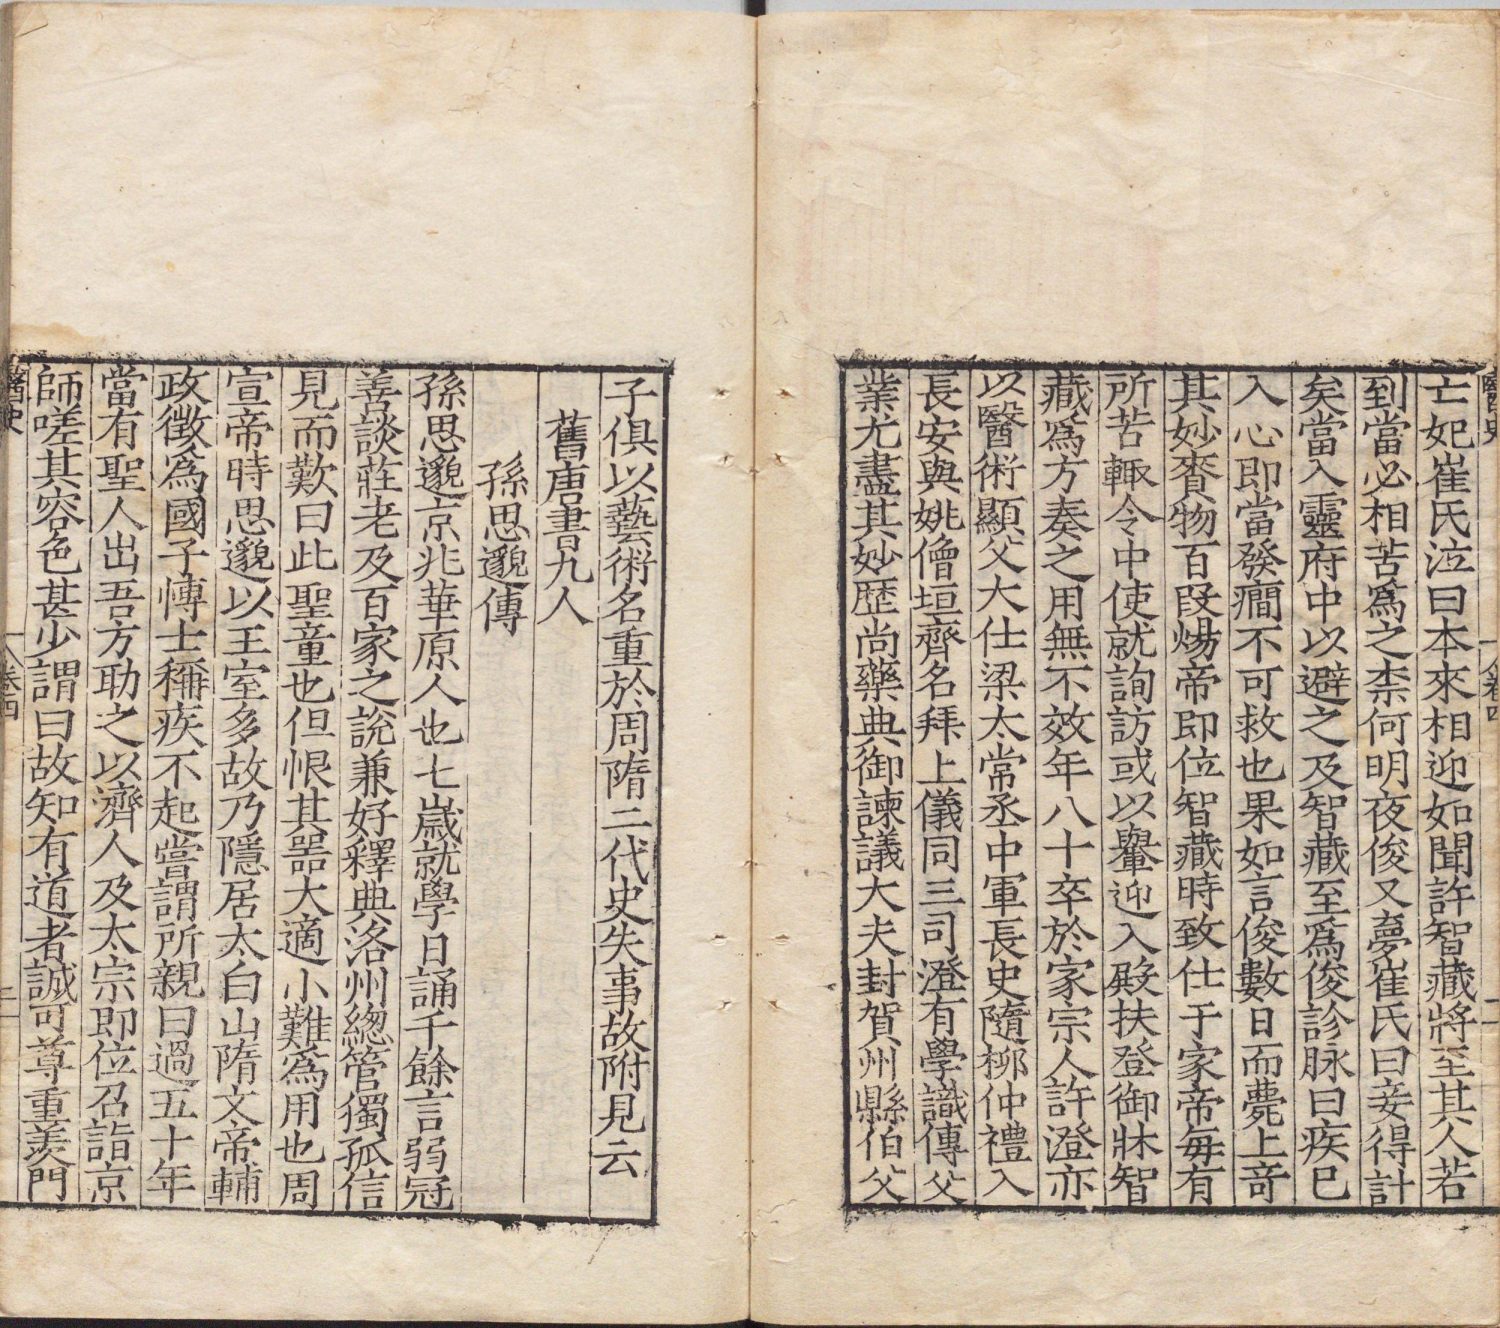 亡妃崔氏泣曰本來相迎如聞許智藏將至其人若
到當必相苦為之柰何明夜俊又夢崔氏曰妾得計
矣當入靈府中以避之及智藏至為俊診脉曰疾巳
入心即當發癇不可救也果如言俊數日而薨上竒
其妙賚物百段煬帝即位智藏時致仕于家帝每有
所苦輒令中使就詢訪或以轝迎入殿扶登御牀智
藏為方奏之用無不效年八十卒於家宗人許澄亦
以醫術顯父大仕梁太常丞中軍長史隨柳仲禮入
長安與姚僧垣齊名拜上儀同三司澄有學識傳父
業尤盡其妙歷尚藥典御諫議大夫封賀州縣伯父
子俱以藝術名重於周隋二代史失事故附見云
舊唐書九人
孫思邈傳
孫思邈京兆華原人也七歲就學日誦千餘言弱冠
善談莊老及百家之說兼好釋典洛州總管獨孤信
見而歎曰此聖童也但恨其器大適小難為用也周
宣帝時思邈以王室多故乃隱居太白山隋文帝輔
政徵為國子博士稱疾不起嘗謂所親曰過五十年
當有聖人出吾方助之以濟人及太宗即位召詣京
師嗟其容色甚少謂曰故知有道者誠可尊重羨門
醫史
卷四